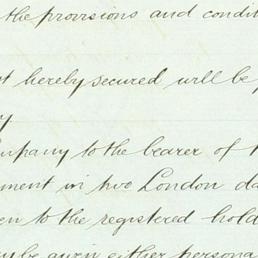 the provisions and condit
t hereby secured will be p
y.
mpany to the bearer of t
ment in two London da
en to the registered hold
y be given either persona